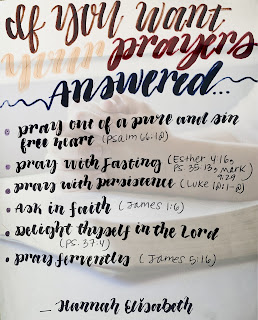 If you want
your prayers
Answered...
pray out of a pure and sin
free heart (Psalm 66:18)
pray with Fasting (Esther 4:16,
Ps. 35:13, Mark
9:29
pray with persistence (Luke 18:1-8)
Ask in faith (James 1:6)
Delight thyself in the Lord
(PS. 37:4)
pray fervently (James 5:16)
_ Hannah Elisabeth